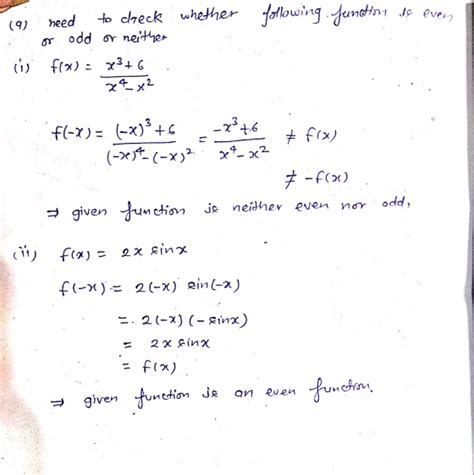 (9) need to check whether following function is even
or odd or neither
(i) f(x) = x³+6 / x⁴-x²
f(-x) = (-x)³+6 / (-x)⁴-(-x)² = -x³+6 / x⁴-x² ≠ f(x)
≠ -f(x)
⇒ given function is neither even nor odd,
(ii) f(x) = 2x sinx
f(-x) = 2(-x) sin(-x)
=. 2(-x) (-sinx)
= 2x sinx
= f(x)
⇒ given function is an even function.